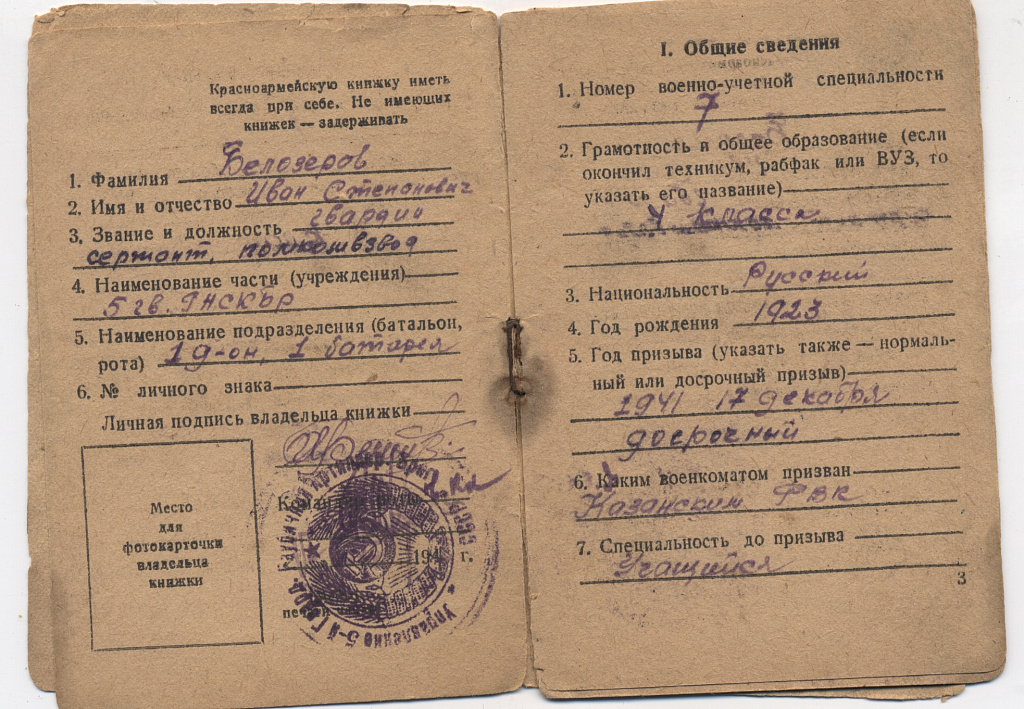 Красноармейскую книжку иметь
всегда при себе. Не имеющих
книжек — задерживать
1. Фамилия Белозеров
2. Имя и отчество Иван Степанович
3. Звание и должность гвардии
сержант, помкомвзвод
4. Наименование части (учреждения)
5 гв. ГИСКЪР
5. Наименование подразделения (батальон,
рота) 1 д-он, 1 батарея
6. № личного знака
Личная подпись владельца книжки
Место
для
фотокарточки
владельца
книжки
Командир
194 г.
Управление 5-й Гвард.
I. Общие сведения
1. Номер военно-учетной специальности
7
2. Грамотность и общее образование (если
окончил техникум, рабфак или ВУЗ, то
указать его название)
4 класса
3. Национальность Русский
4. Год рождения 1923
5. Год призыва (указать также — нормаль-
ный или досрочный призыв)
1941 17 декабря
досрочный
6. Каким военкоматом призван
Казанским РВК
7. Специальность до призыва
Учащийся
3